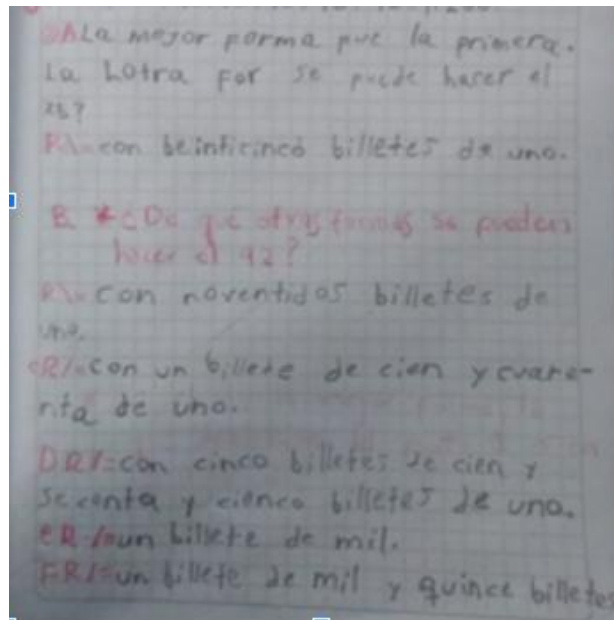 A La mejor forma fue la primera.
La hotra for se puede hacer el
25?
R/= con beinticinco billetes de uno.
B. * ¿De que otras formas se pueden
hacer el 92?
R/= con noventidos billetes de
uno.
cR/= con un billete de cien y cuare-
nta de uno.
DR/= con cinco billetes de cien y
secenta y cienco billetes de uno.
eR/= un billete de mil.
FR/= un billete de mil y quince billetes